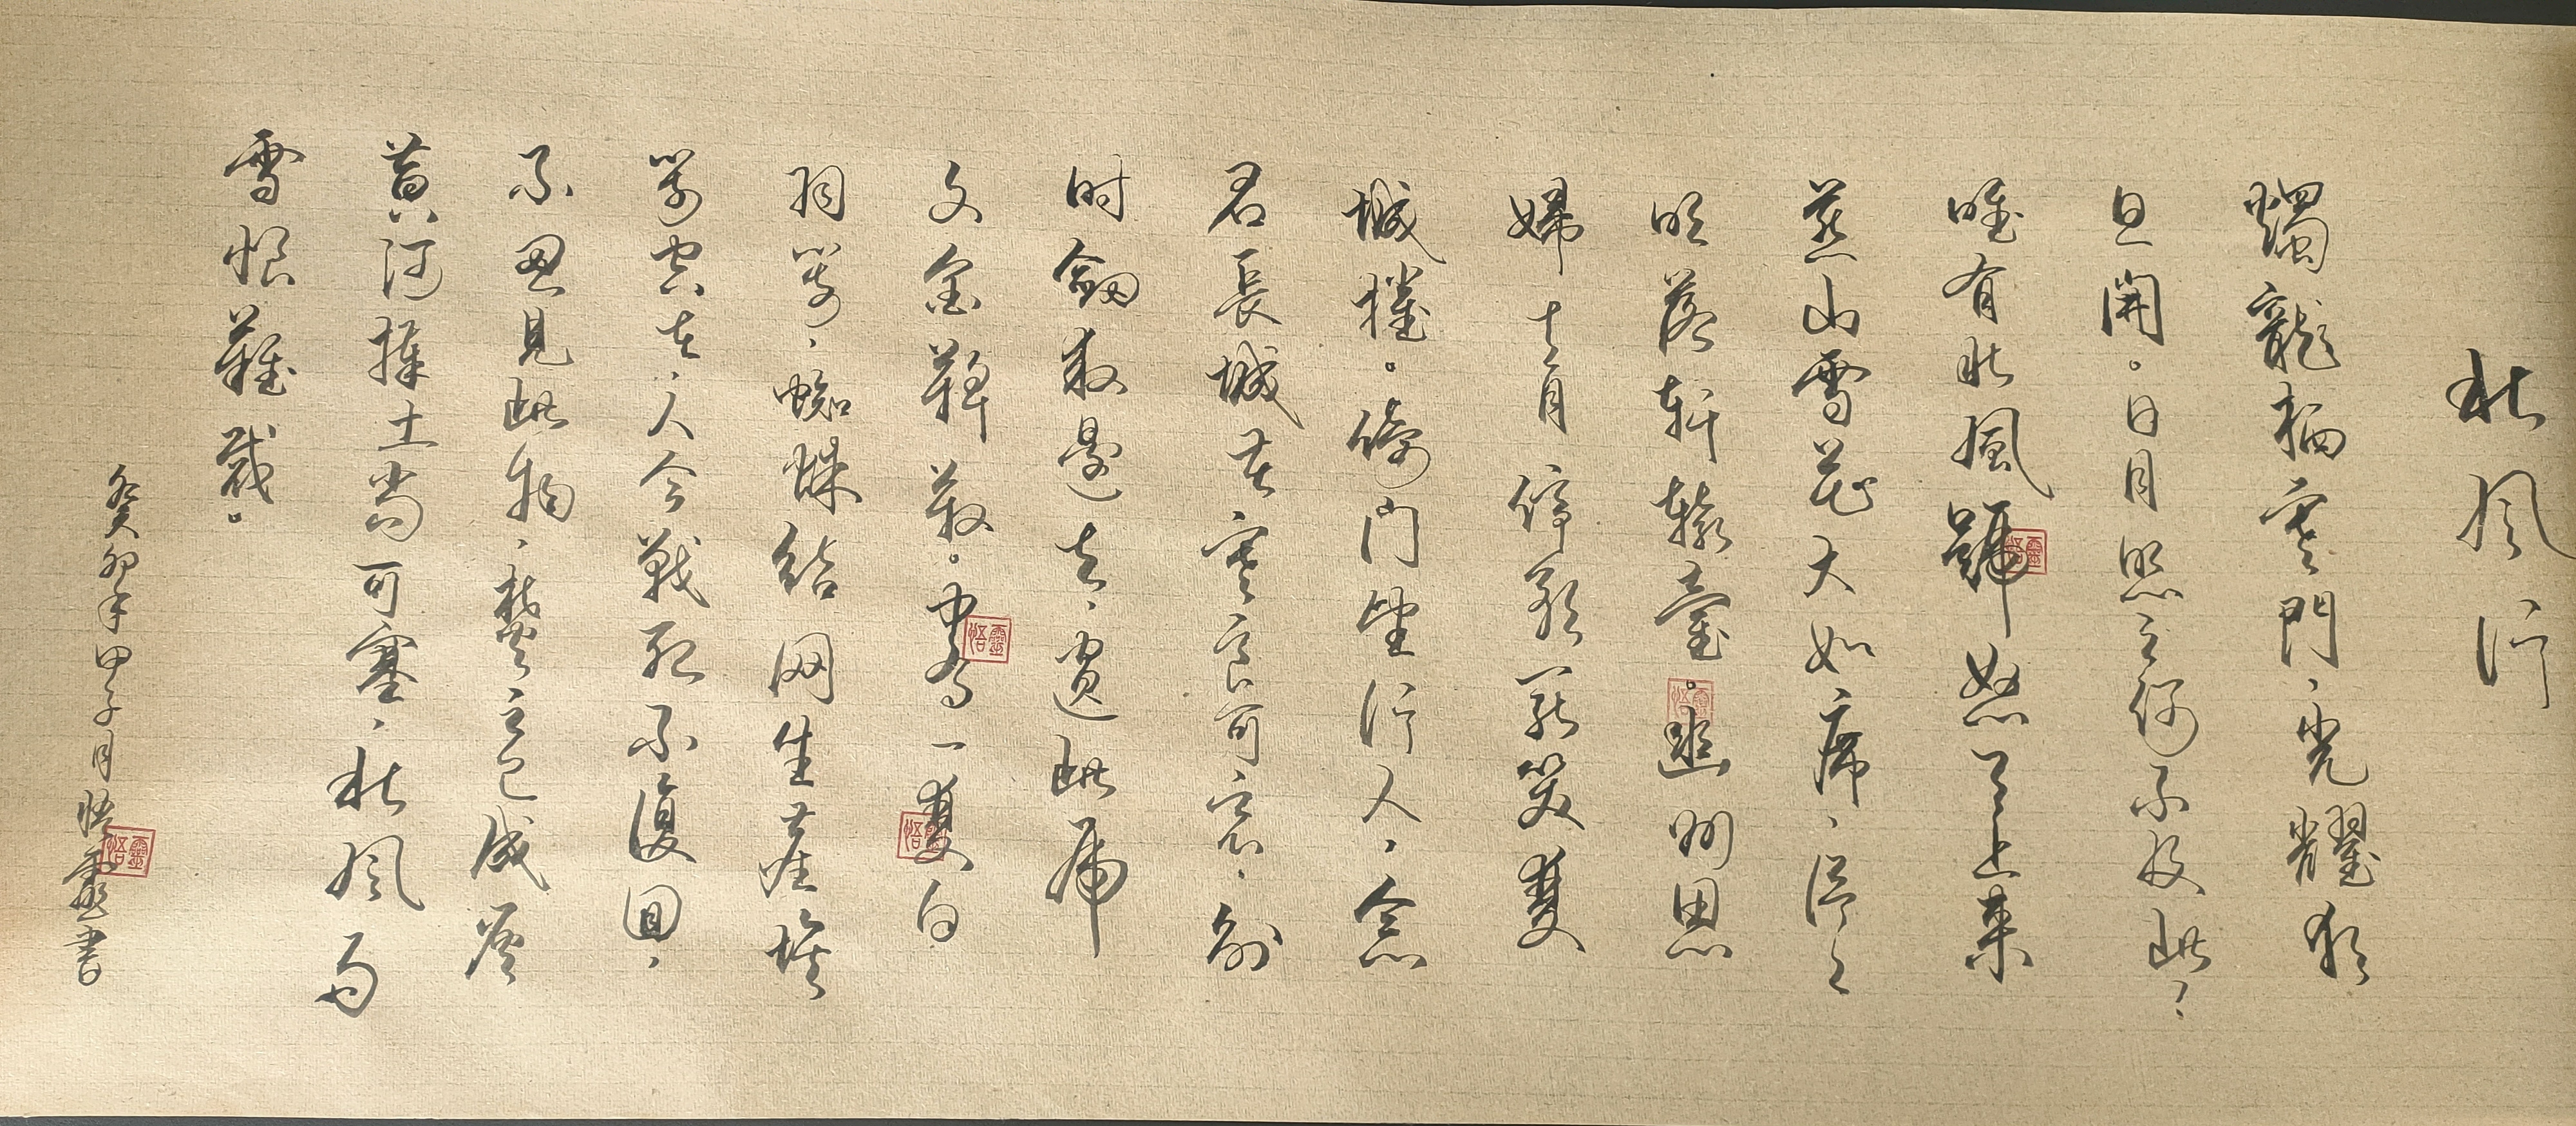 北风行
燭龍栖寒門，光耀猶
旦開。日月照之何不及此，
唯有北風號怒天上来
燕山雪花大如席，片々
吹落軒轅臺。幽州思
婦十二月停歌罷笑雙
蛾摧。倚门望行人，念
君長城苦寒良可哀，别
时劍救邊去，遺此虎
文金鞞靫。中有一雙白
羽箭，蜘蛛结网生塵埃
箭空在，人今戰死不復回，
不忍見此物，焚之已成灰
黄河捧土尚可塞，北风雨
雪恨難裁。
癸卯年甲子月悟靈書